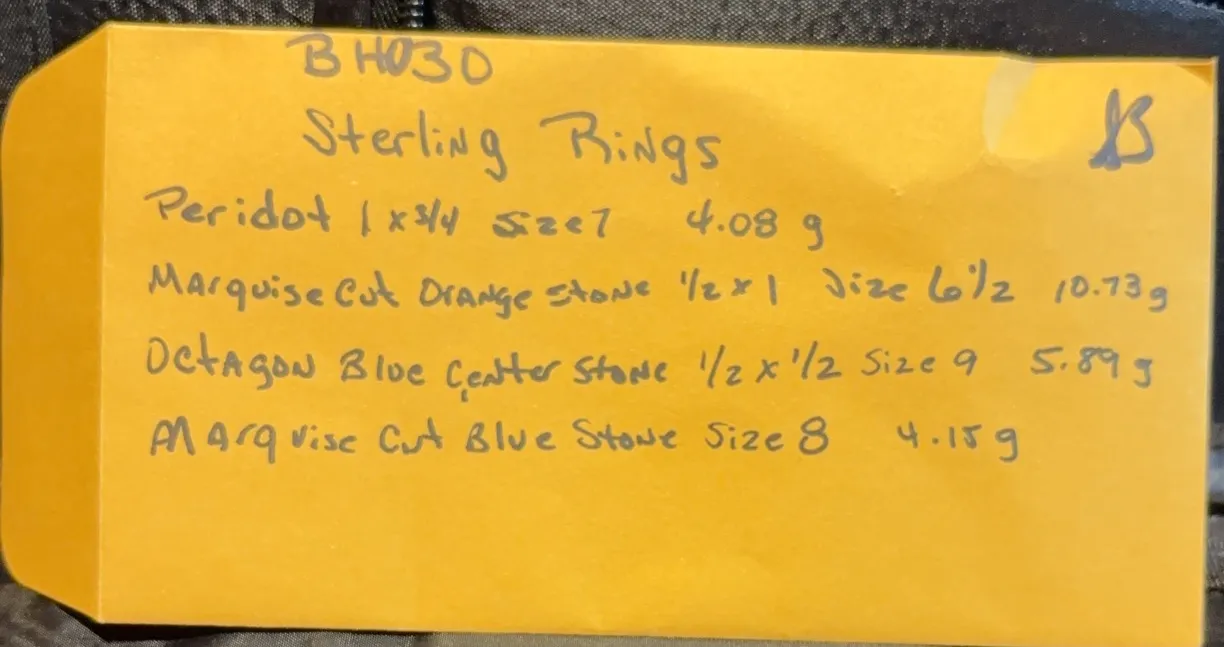 BH030
Sterling Rings
Peridot 1 x 3/4 Size 7 4.08 g
Marquise Cut Orange Stone 1/2 x 1 Size 6 1/2 10.73 g
Octagon Blue Center Stone 1/2 x 1/2 Size 9 5.89 g
Marquise Cut Blue Stone Size 8 4.15 g